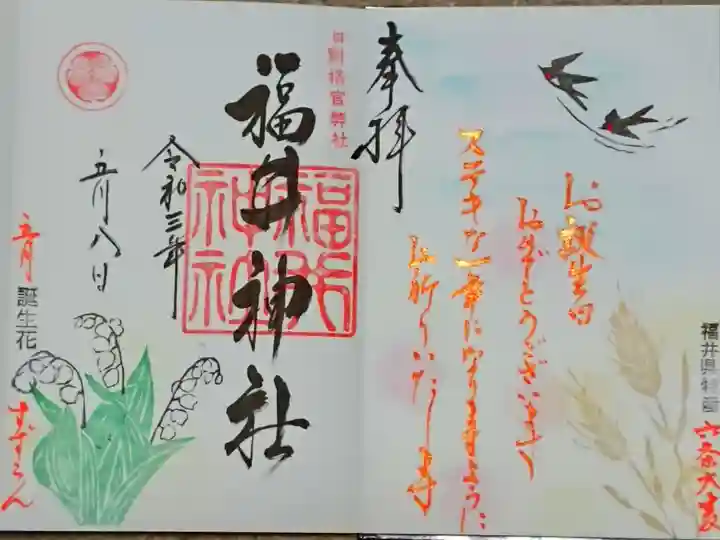 奉拝
お誕生日
おめでとうございます
ステキな一年になりますように
お祈りいたします
福井県特産
六条大麦
旧別格官幣社
福井神社
福井神社
令和三年
五月八日
五月
誕生花
すずらん